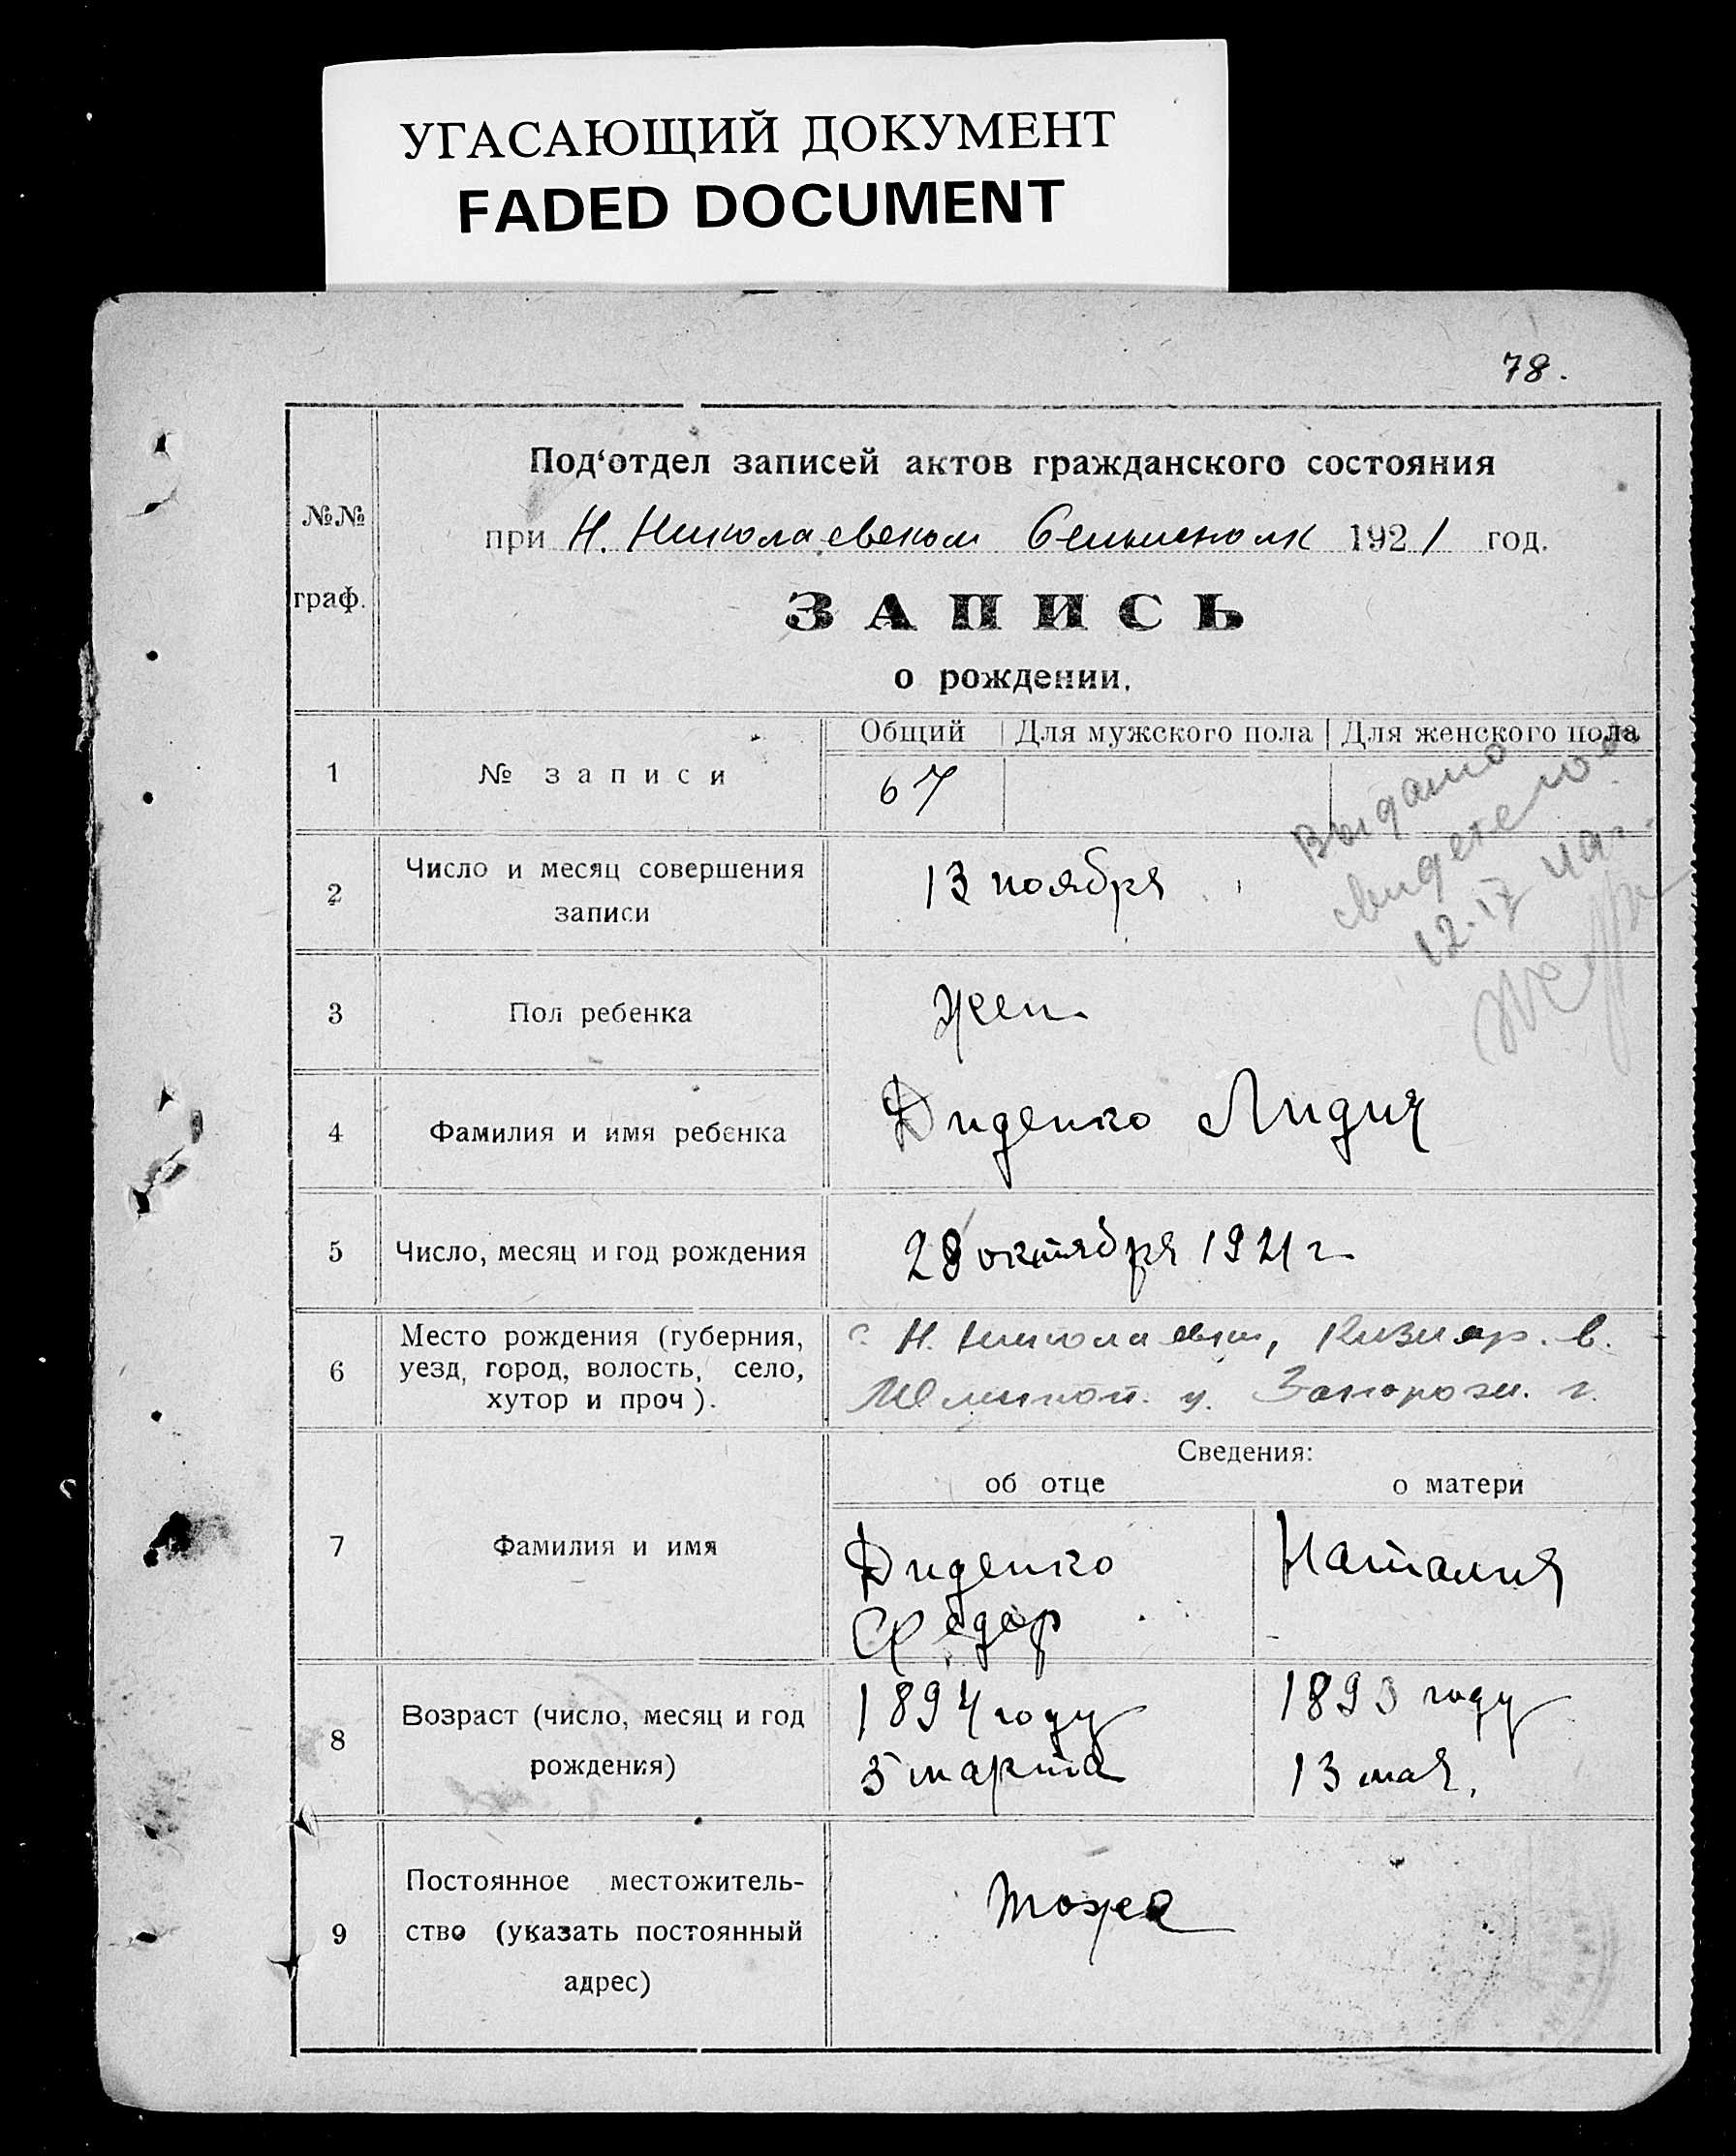 УГАСАЮЩИЙ ДОКУМЕНТ
FADED DOCUMENT
78.
Под‘отдел записей актов гражданского состояния
№№
при Н. Николаевском 1921 год.
граф.
ЗАПИСЬ
о рождении.
Общий Для мужского пола Для женского пола
1 № записи 67
Выдано
2 Число и месяц совершения записи 13 ноября
12.IV
3 Пол ребенка Жен.
4 Фамилия и имя ребенка Диденко Лидия
5 Число, месяц и год рождения 28 октября 1921 г.
6 Место рождения (губерния, с. Н. Николаевки, Кизияр. в.
уезд, город, волость, село, Мелитоп. у. Запорож. г.
хутор и проч).
Сведения:
об отце о матери
7 Фамилия и имя Диденко Наталия
Федор
8 Возраст (число, месяц и год 1894 году 1893 году
рождения) 5 марта 13 мая.
Постоянное местожитель-
9 ство (указать постоянный тоже
адрес)